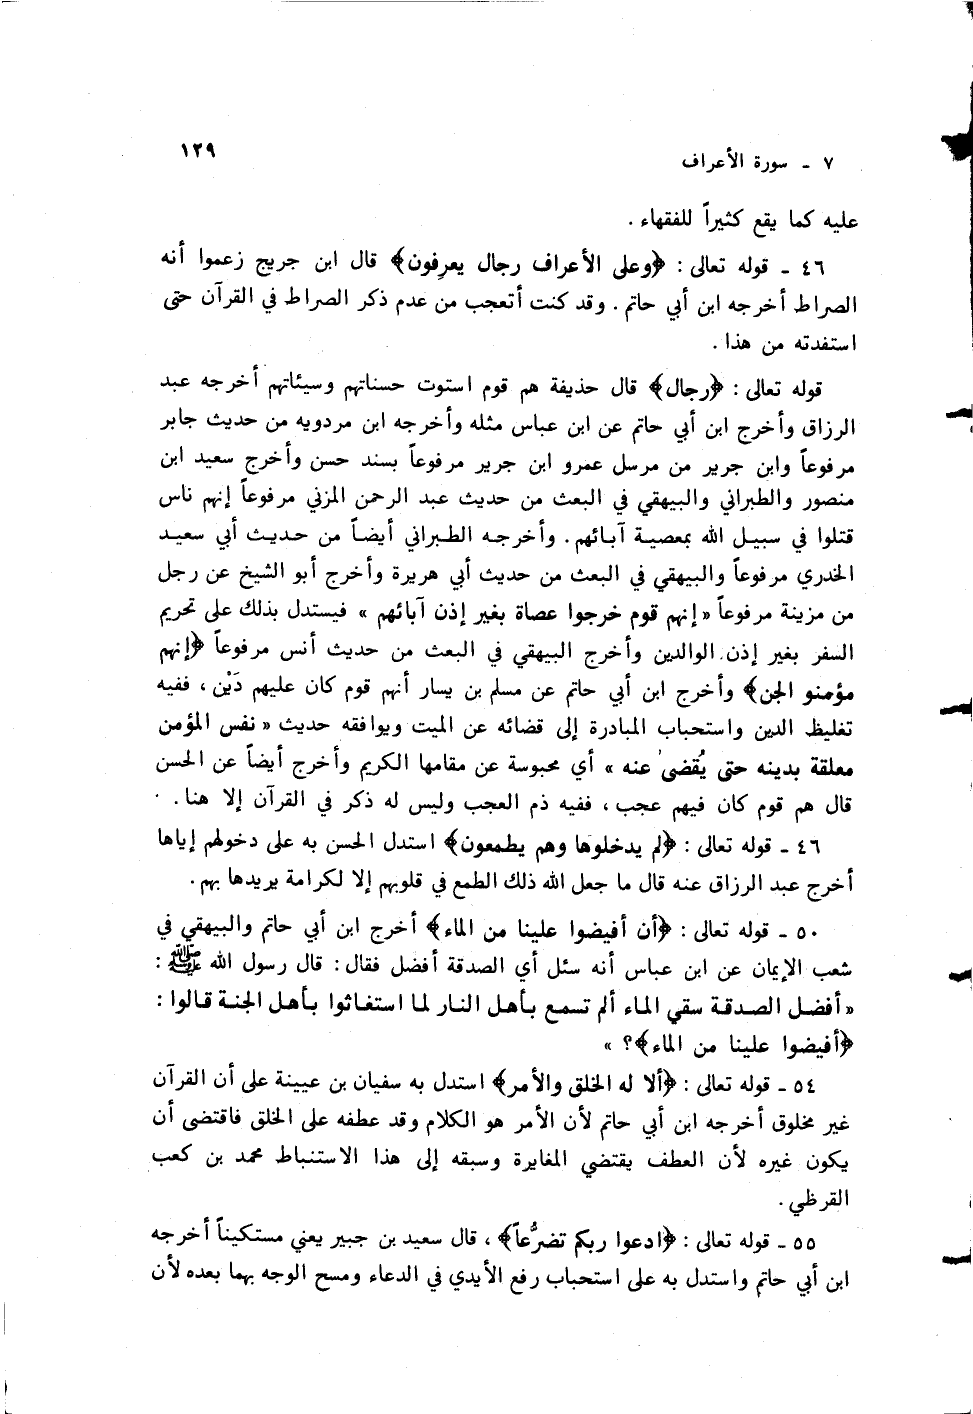 ٧ - سورة الأعراف ١٢٩
عليه كما يقع كثيراً للفقهاء .
٤٦ - قوله تعالى : ﴿وعلى الأعراف رجال يعرفون﴾ قال ابن جريج زعموا أنه
الصراط أخرجه ابن أبي حاتم . وقد كنت أتعجب من عدم ذكر الصراط في القرآن حتى
استفدته من هذا .
قوله تعالى : ﴿رجال﴾ قال حذيفة هم قوم استوت حسناتهم وسيئاتهم أخرجه عبد
الرزاق وأخرج ابن أبي حاتم عن ابن عباس مثله وأخرجه ابن مردويه من حديث جابر
مرفوعاً وابن جرير من مرسل عمرو ابن جرير مرفوعاً بسند حسن وأخرج سعيد ابن
منصور والطبراني والبيهقي في البعث من حديث عبد الرحمن المزني مرفوعاً إنهم ناس
قتلوا في سبيل الله بمعصية آبائهم . وأخرجه الطبراني أيضاً من حديث أبي سعيد
الخدري مرفوعاً والبيهقي في البعث من حديث أبي هريرة وأخرج أبو الشيخ عن رجل
من مزينة مرفوعاً « إنهم قوم خرجوا عصاة بغير إذن آبائهم » فيستدل بذلك على تحريم
السفر بغير إذن الوالدين وأخرج البيهقي في البعث من حديث أنس مرفوعاً ﴿إنهم
مؤمنو الجن﴾ وأخرج ابن أبي حاتم عن مسلم بن يسار أنهم قوم كان عليهم دَيْن ، ففيه
تغليظ الدين واستحباب المبادرة إلى قضائه عن الميت ويوافقه حديث « نفس المؤمن
معلقة بدينه حتى يُقضى عنه » أي محبوسة عن مقامها الكريم وأخرج أيضاً عن الحسن
قال هم قوم كان فيهم عجب ، ففيه ذم العجب وليس له ذكر في القرآن إلا هنا .
٤٦ - قوله تعالى : ﴿لم يدخلوها وهم يطمعون﴾ استدل الحسن به على دخولهم إياها
أخرج عبد الرزاق عنه قال ما جعل الله ذلك الطمع في قلوبهم إلا لكرامة يريدها بهم .
٥٠ - قوله تعالى : ﴿أن أفيضوا علينا من الماء﴾ أخرج ابن أبي حاتم والبيهقي في
شعب الإيمان عن ابن عباس أنه سئل أي الصدقة أفضل فقال : قال رسول الله ﷺ :
« أفضل الصدقة سقي الماء ألم تسمع بأهل النار لما استغاثوا بأهل الجنة قالوا :
﴿أفيضوا علينا من الماء﴾؟ »
٥٤ - قوله تعالى : ﴿ألا له الخلق والأمر﴾ استدل به سفيان بن عيينة على أن القرآن
غير مخلوق أخرجه ابن أبي حاتم لأن الأمر هو الكلام وقد عطفه على الخلق فاقتضى أن
يكون غيره لأن العطف يقتضي المغايرة وسبقه إلى هذا الاستنباط محمد بن كعب
القرظي .
٥٥ - قوله تعالى : ﴿ادعوا ربكم تضرُّعاً﴾ ، قال سعيد بن جبير يعني مستكيناً أخرجه
ابن أبي حاتم واستدل به على استحباب رفع الأيدي في الدعاء ومسح الوجه بهما بعده لأن